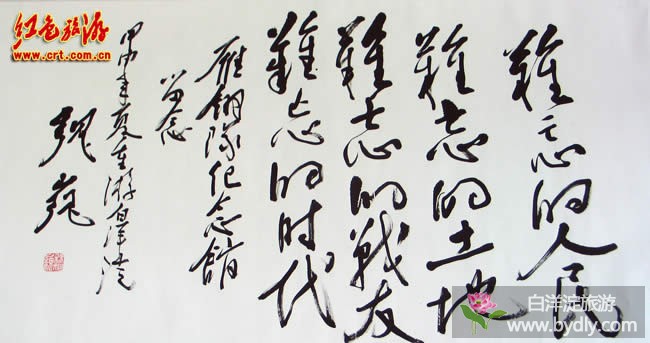 難忘的人民
難忘的土地
難忘的戰友
難忘的时代
雁翎隊纪念館
留念
甲申年夏重游白洋淀
魏巍
红色旅游
www.crt.com.cn
白洋淀旅游
www.bydly.com